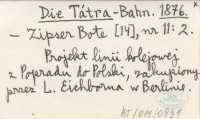 Die Tátra-Bahn. 1876.
– Zipser Bote [14], nr 11: 2.
Projekt linii kolejowej
z Popradu do Polski, zakupiony
przez L. Eichborna w Berlinie.